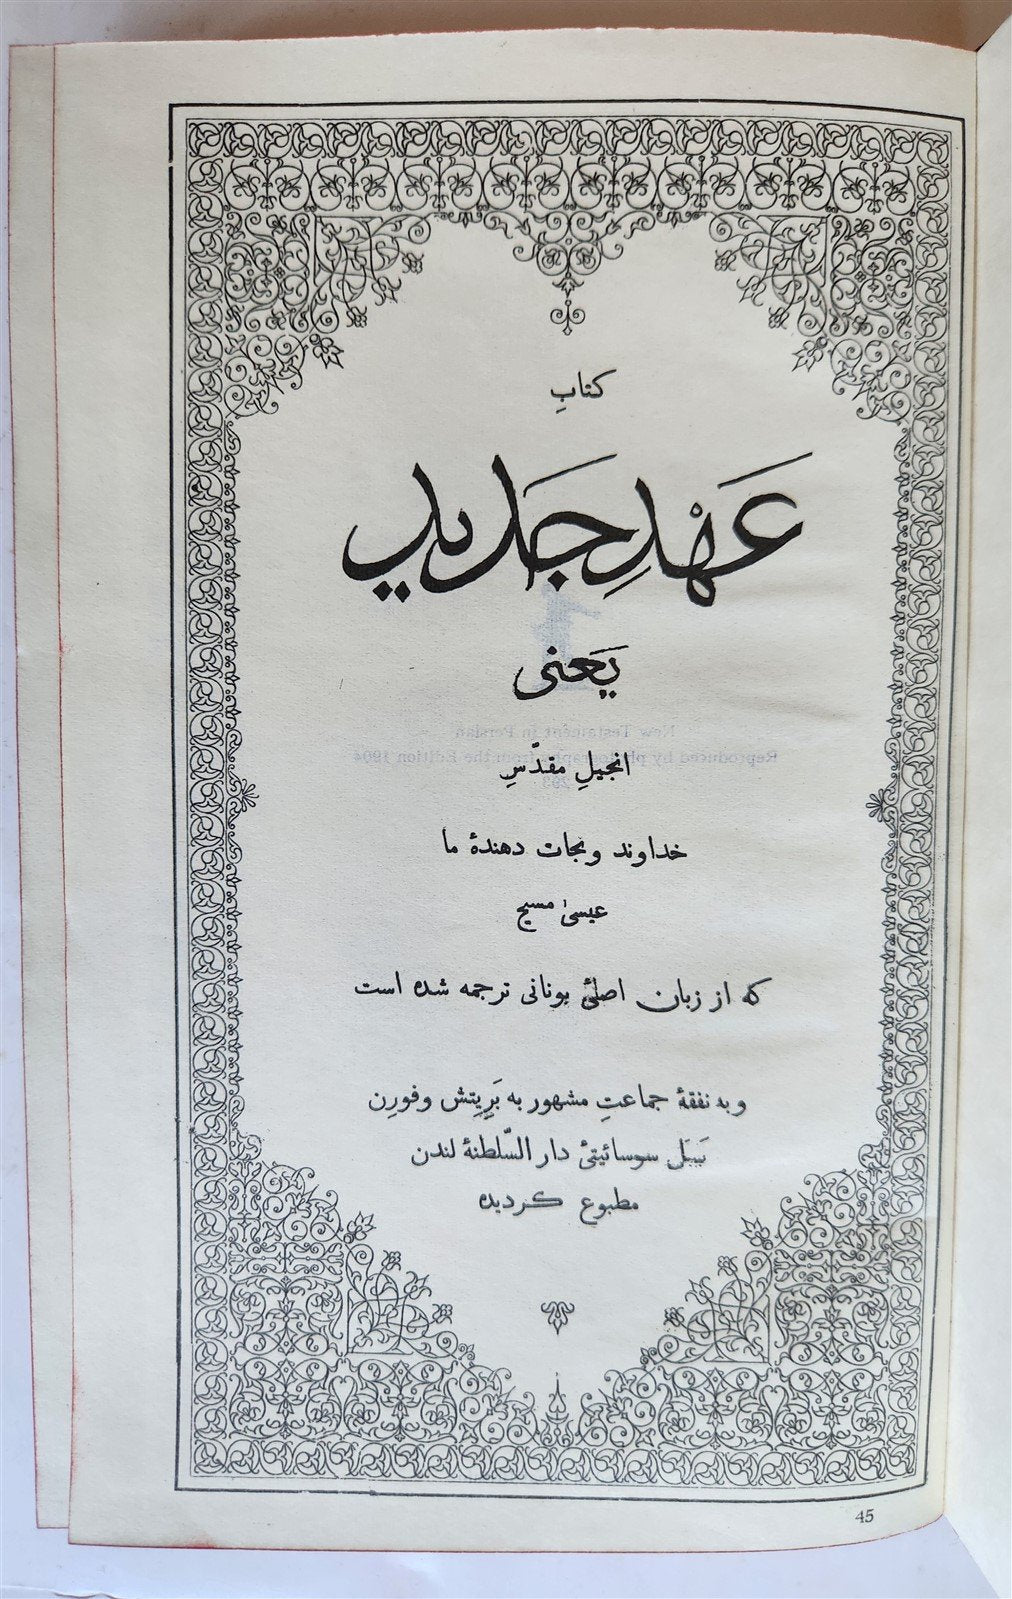 کتابِ
عَهْدِ جَدید
یَعنی
انجیلِ مقدّسِ
خداوند و نجات دهندهٔ ما
عیسیٰ مسیح
که از زبان اصلیٔ یونانی ترجمه شده است
و به نفقهٔ جماعتِ مشهور به بَرِیتِش و فورِن
بَیبَل سوسائیتیٔ دار السّلطنهٔ لندن
مطبوع کردیده
New Testament in Persian
Reproduced by photography from the Edition 1904
45